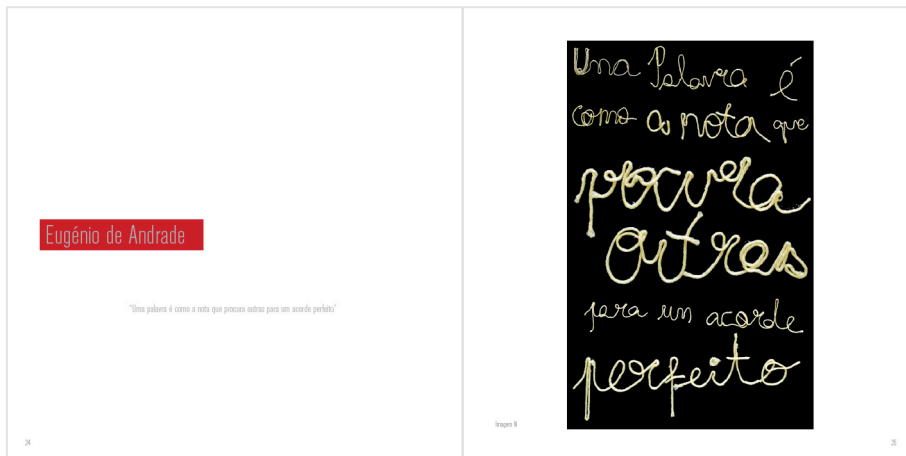 Eugénio de Andrade
"Uma palavra é como a nota que procura outras para um acorde perfeito"
24
Uma Palavra é
como a nota que
procura
outras
para um acorde
perfeito
Imagem N
25